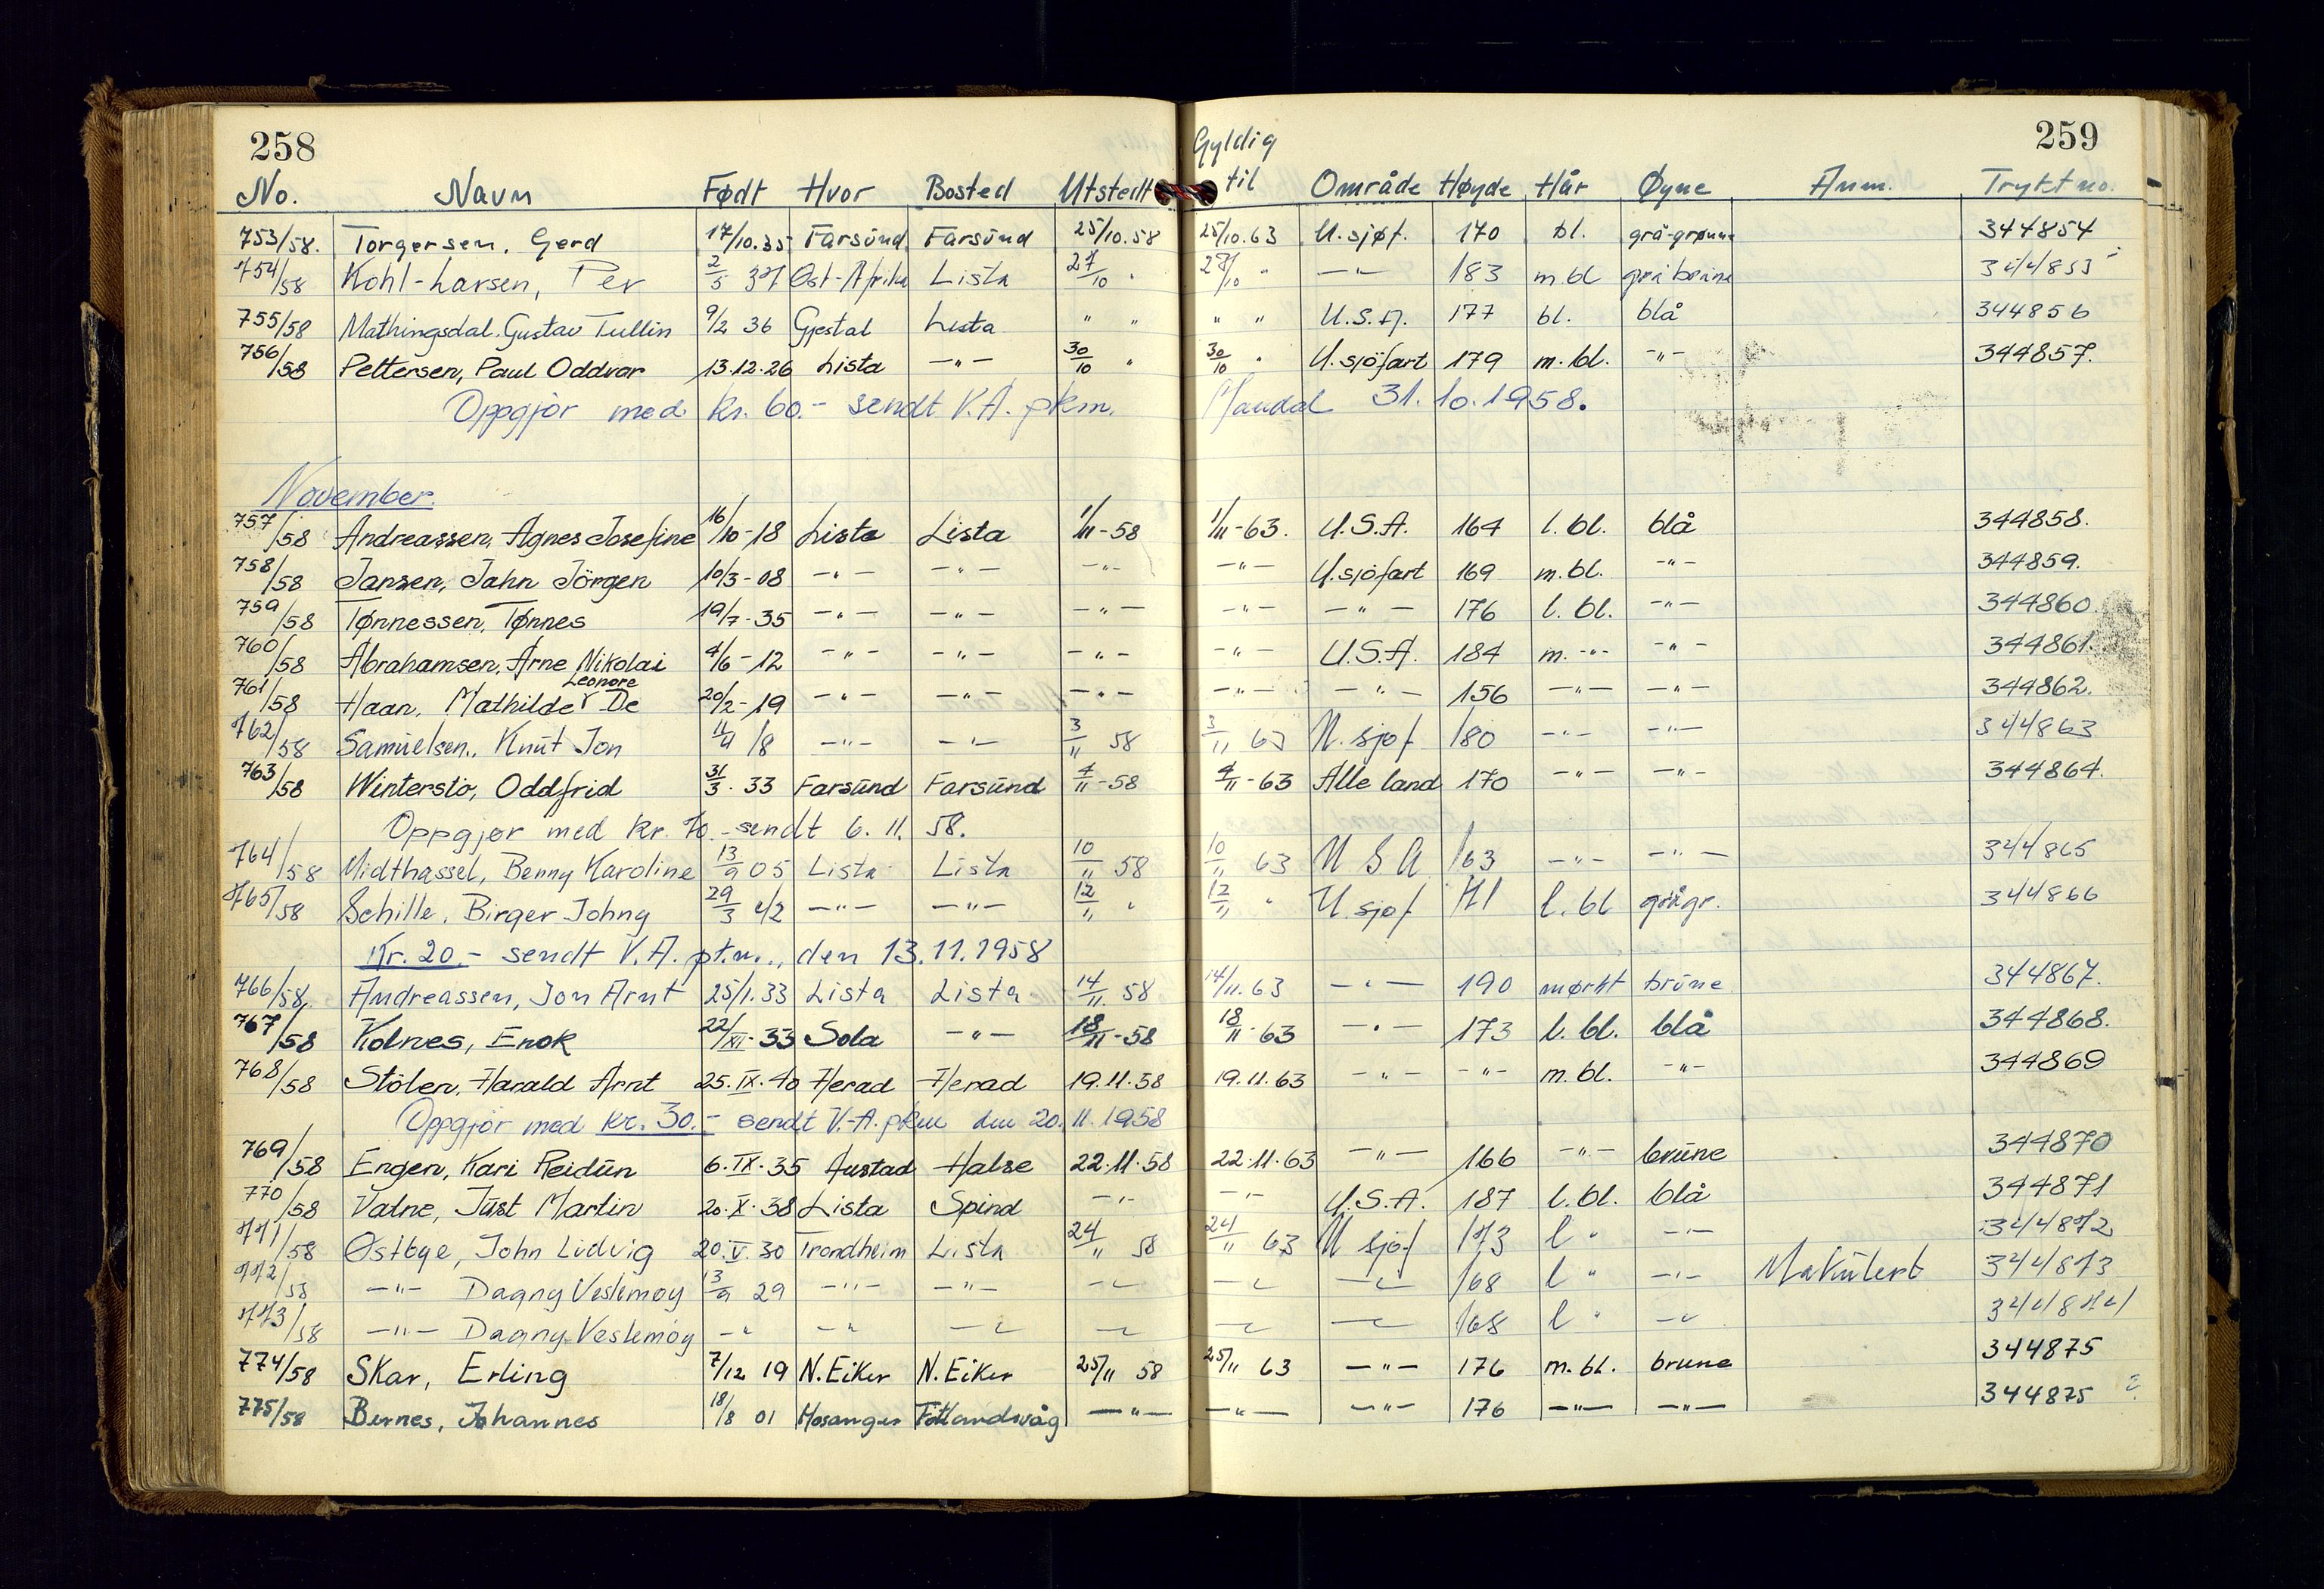 258
259
No. Navn Født Hvor Bosted Utstedt Gyldig til Område Høyde Hår Øyne Anm. Trykt no.
753/58. Torgersen, Gerd 17/10.35 Farsund Farsund 25/10.58 25/10.63 U.sjøf. 170 bl. grå-grønne 344854
754/58 Kohl-Larsen, Per 2/5 37 Øst-Afrika Lista 27/10 " 27/10 " —"— 183 m bl 
755/58 Mathingsdal. Gustav Tullin 9/2 36 Gjestal Lista " " " " U.S.A. 177 bl. blå 344856
756/58 Pettersen, Paul Oddvar 13.12.26 Lista —"— 30/10 " 30/10 " U.sjöfart 179 m.bl. —"— 344857.
Oppgjör med kr. 60.- sendt V.A. pkm. Mandal 31.10.1958.
November.
757/58 Andreassen, Agnes Josefine 16/10-18 Lista Lista 1/11-58 1/11-63. U.S.A. 164 l.bl. blå 344858.
758/58 Jansen, Jahn Jörgen 10/3-08 —"— —"— —"— —"— U.sjöfart 169 m.bl. —"— 344859.
759/58 Tønnessen, Tønnes 19/7-35 —"— —"— —"— —"— —"— 176 l.bl. —"— 344860.
760/58 Abrahamsen, Arne Nikolai 4/6-12 —"— —"— —"— —"— U.S.A. 184 m.-"- —"— 344861.
761/58 Haan, Mathilde Leonore De 20/2-19 —"— —"— —"— —"— —"— 156 —"— —"— 344862.
762/58 Samuelsen, Knut Jon 11/4 18 —"— —"— 3/11 58 3/11 63 U.sjøf 180 —"— —"— 344863
763/58 Winterstö, Oddfrid 31/3.33 Farsund Farsund 4/11-58 4/11-63 Alle land 170 —"— —"— 344864.
Oppgjør med kr. 70.- sendt 6.11.58.
764/58 Midthassel, Benny Karoline 13/9 05 Lista Lista 10/11 58 10/11 63 U S A 163 —"— —"— 344865
765/58 Schille, Birger Johny 29/3 42 —"— —"— 12/11 " 12/11 " U.sjøf l.bl grågr. 344866
Kr. 20.- sendt V.A. pt.m., den 13.11.1958
766/58. Andreassen, Jon Arnt 25/1.33 Lista Lista 14/11.58 14/11.63 —"— 190 mørkt brune 344867.
767/58 Kolnes, Enok 22/XII-33 Sola —"— 18/11-58 18/11-63 —"— 173 l.bl. blå 344868.
768/58 Stölen, Harald Arnt 25.IX.40 Herad Herad 19.11.58 19.11.63 —"— —"— m.bl. —"— 344869
Oppgjör med kr. 30.- sendt V.-A. pkm den 20.11.1958
769/58 Engen, Kari Reidun 6.IX.35 Austad Halse 22.11.58 22.11.63 —"— 166 —"— brune 344870
770/58 Vatne, Just Martin 20.X.38 Lista Spind —"— —"— U.S.A. 187 l.bl. blå 344871
771/58 Østbye, John Ludvig 20.V.30 Trondheim Lista 24/11 58 24/11 63 U sjøf 173 l " —"— 344872
772/58 —"— Dagny Veslemøy 13/9 29 —"— —"— —"— —"— —"— 168 l " —"— Makulert 344873
773/58 —"— Dagny Veslemøy —"— —"— —"— —"— —"— —"— 168 l " —"— 344874
774/58 Skar, Erling 7/12 19 N.Eiker N.Eiker 25/11 58 25/11 63 —"— 176 m.bl. brune 344875
775/58 Bernes, Johannes 18/8 01 Hosanger Fotlandsvåg —"— —"— —"— 176 —"— —"— 344875 ?